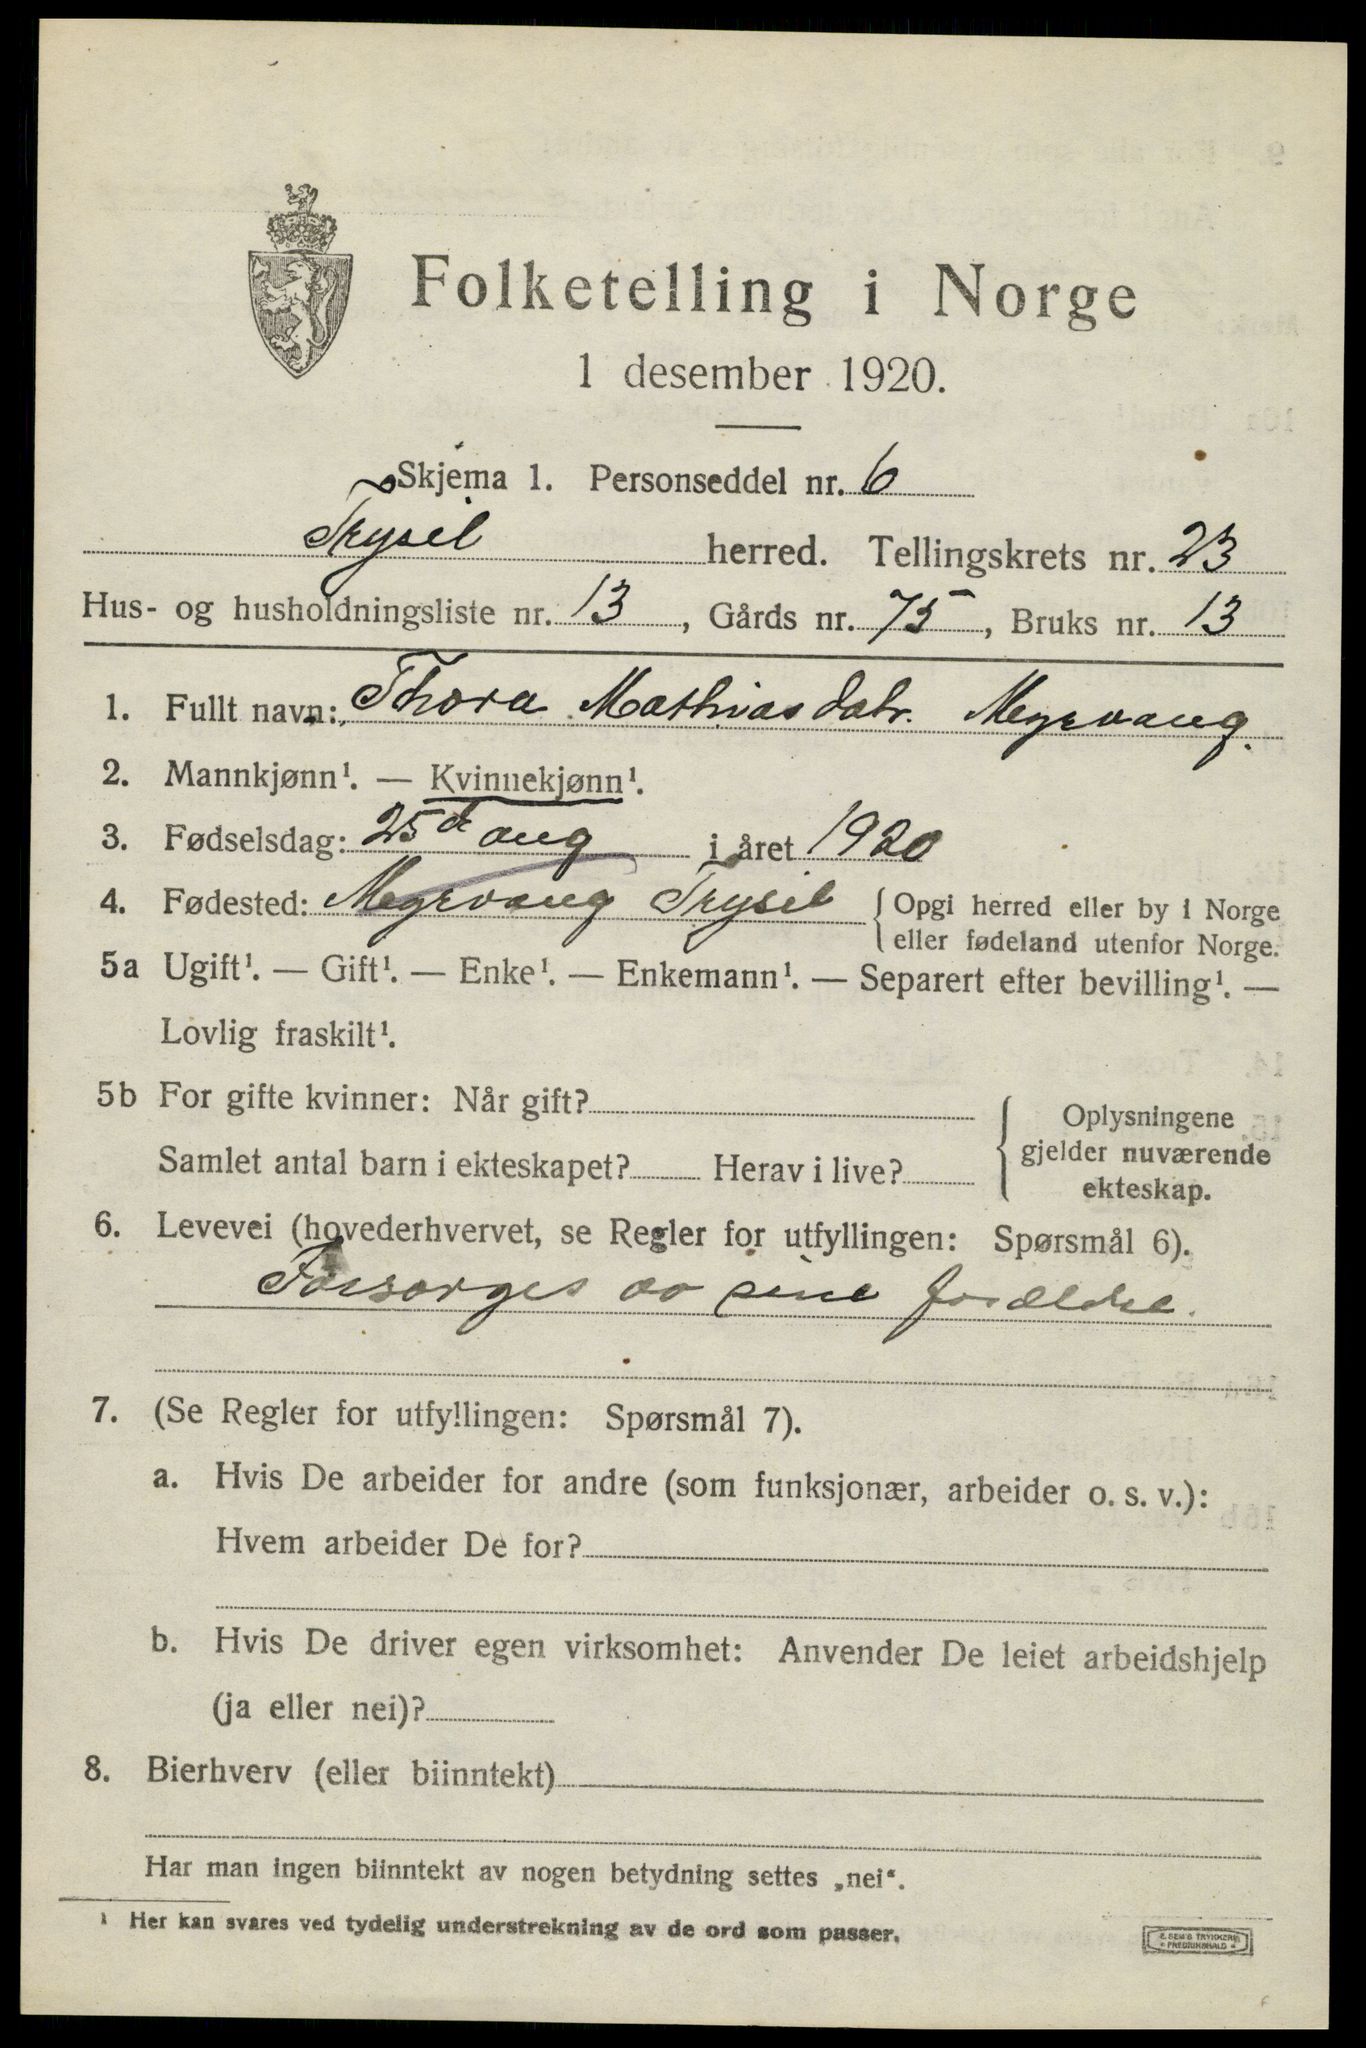 Folketelling i Norge
1 desember 1920.
Skjema 1. Personseddel nr. 6
Trysil herred. Tellingskrets nr. 23
Hus- og husholdningsliste nr. 13, Gårds nr. 75, Bruks nr. 13
1. Fullt navn: Thora Mathiasdatr. Mepevang.
2. Mannkjønn¹. — Kvinnekjønn¹.
3. Fødselsdag: 25de aug i året 1920
4. Fødested: Trysil { Opgi herred eller by i Norge
eller fødeland utenfor Norge.
5a Ugift¹. — Gift¹. — Enke¹. — Enkemann¹. — Separert efter bevilling¹. —
Lovlig fraskilt¹.
5b For gifte kvinner: Når gift? { Oplysningene
gjelder nuværende
ekteskap.
Samlet antal barn i ekteskapet? Herav i live?
6. Levevei (hovederhvervet, se Regler for utfyllingen: Spørsmål 6).
Forsørges av sine forældre.
7. (Se Regler for utfyllingen: Spørsmål 7).
a. Hvis De arbeider for andre (som funksjonær, arbeider o. s. v.):
Hvem arbeider De for?
b. Hvis De driver egen virksomhet: Anvender De leiet arbeidshjelp
(ja eller nei)?
8. Bierhverv (eller biinntekt)
Har man ingen biinntekt av nogen betydning settes „nei“.
¹ Her kan svares ved tydelig understrekning av de ord som passer.
E. SEM'S TRYKKERI
FREDRIKSHALD